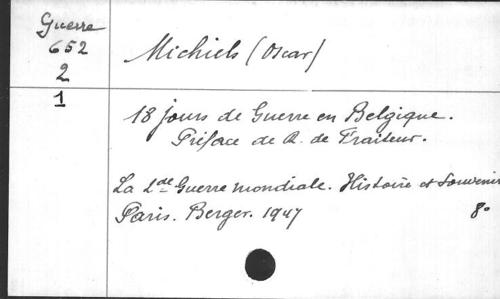 Guerre
652
2
1
Michiels (Oscar)
18 jours de Guerre en Belgique.
Préface de R. de Traiteur.
La 2de Guerre mondiale. Histoire et Souvenir
Paris. Berger. 1947 8°